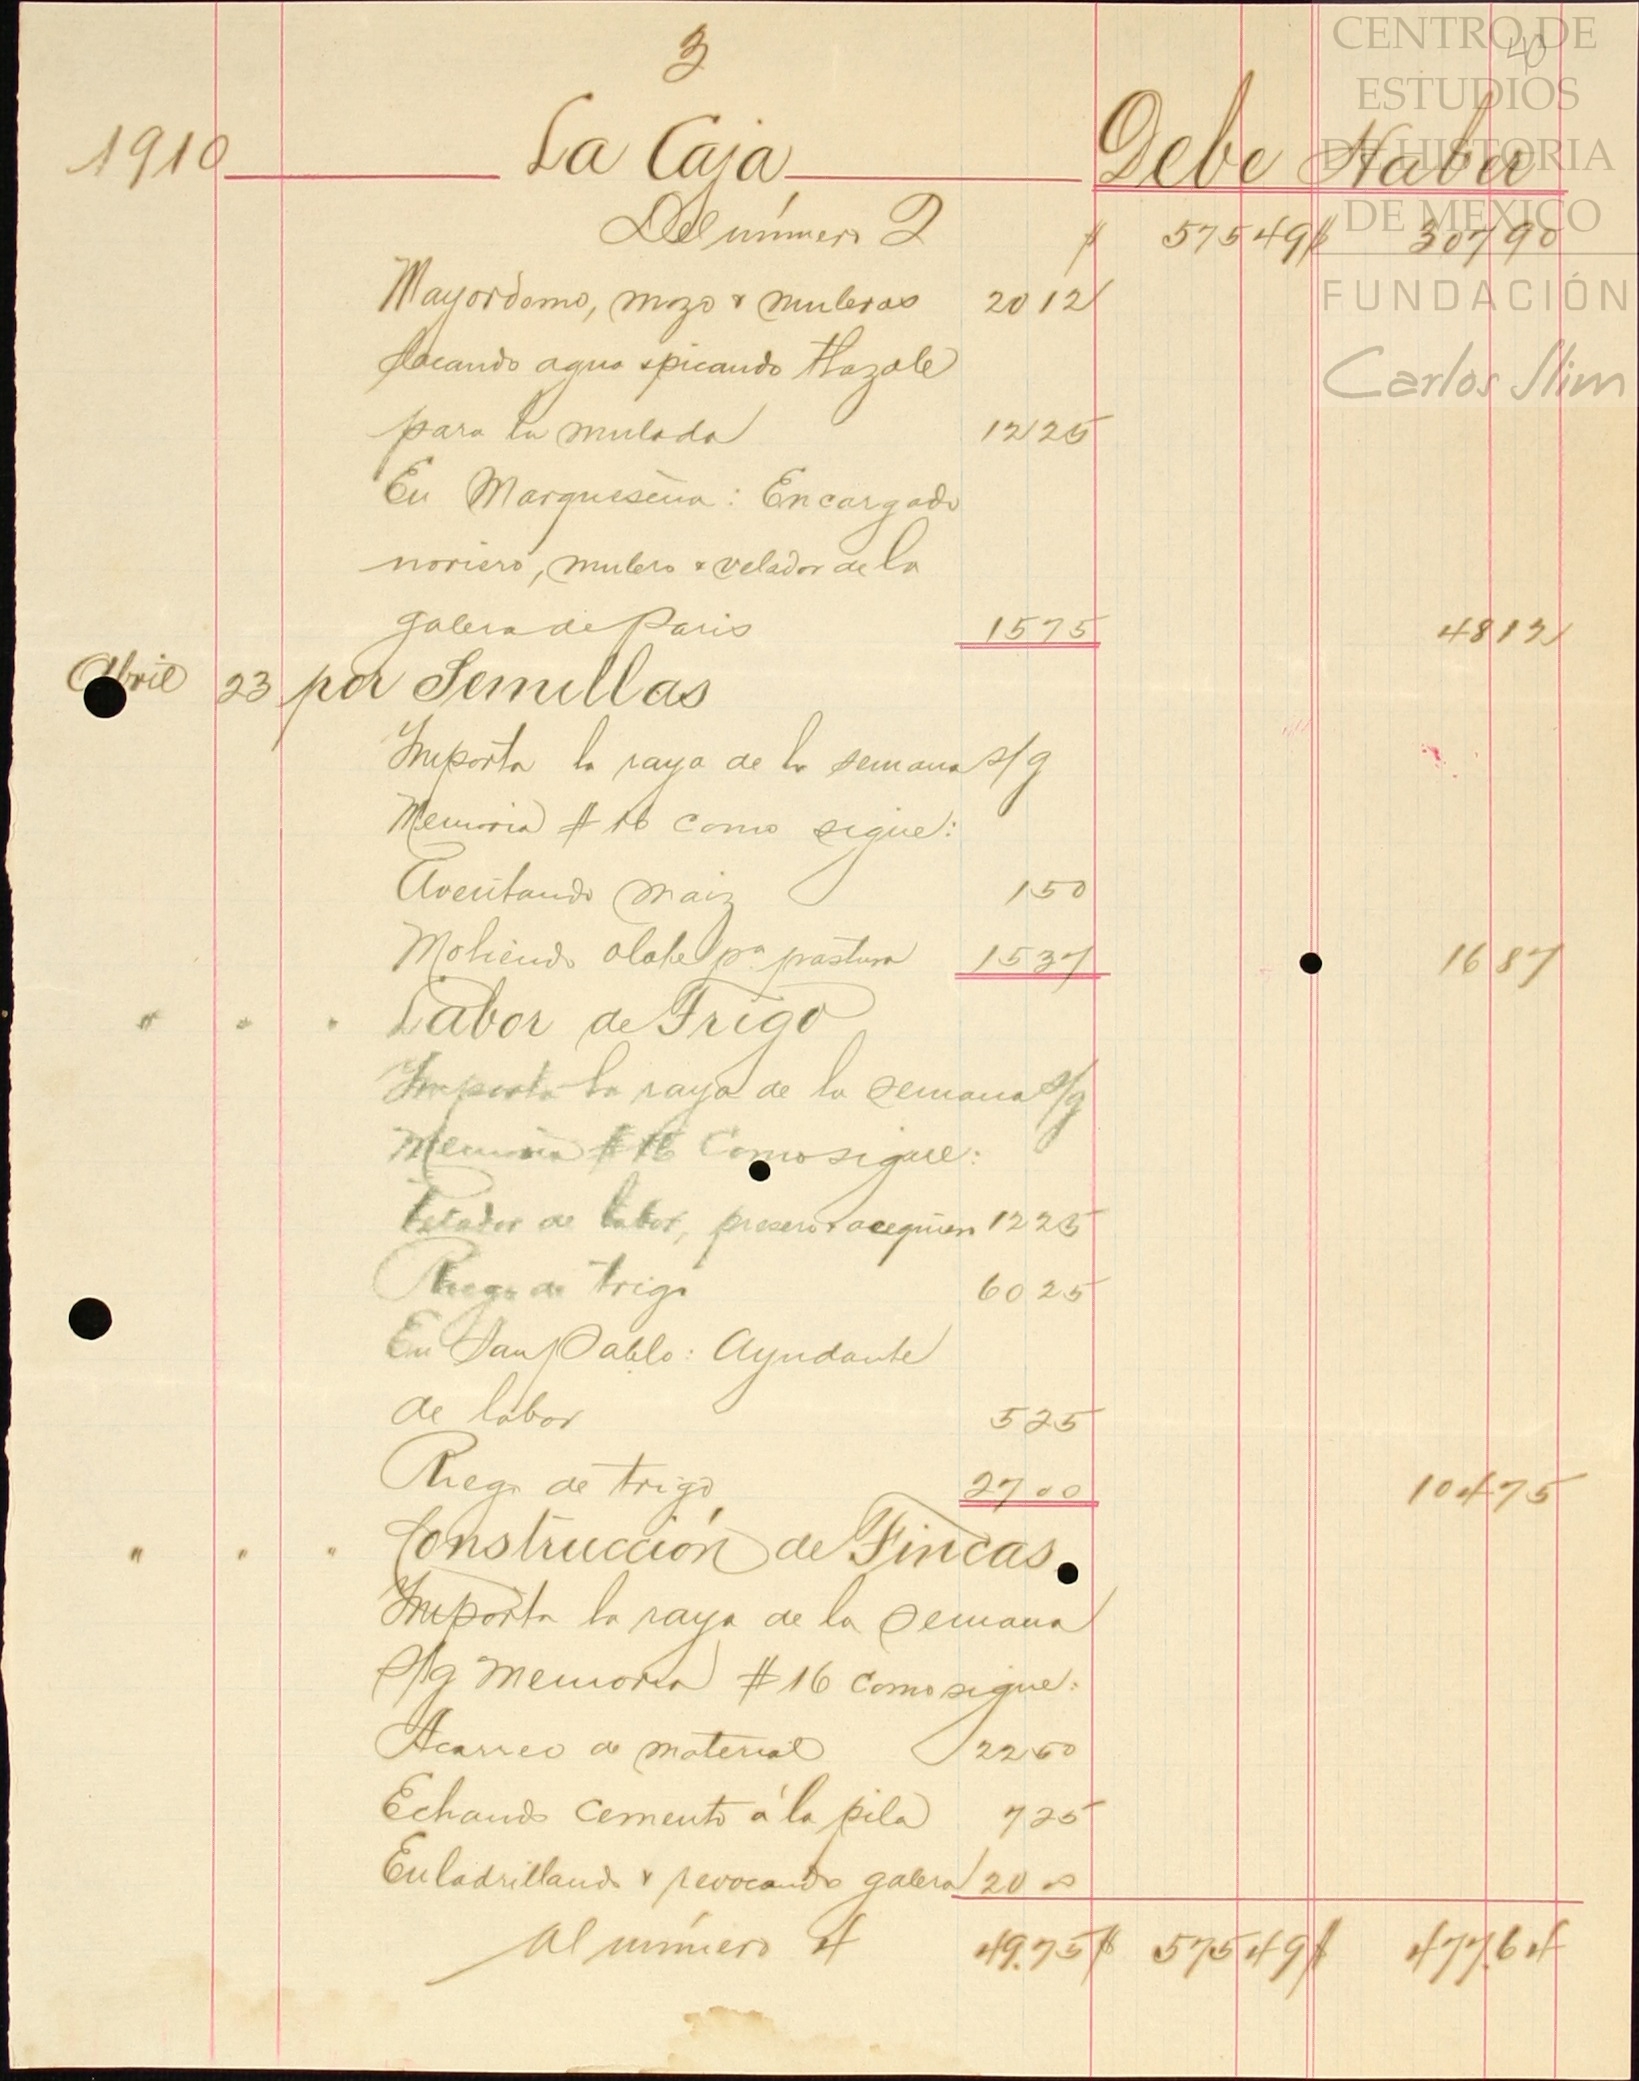 3
40
CENTRO DE
ESTUDIOS
DE HISTORIA
DE MEXICO
FUNDACIÓN
Carlos Slim
1910 La Caja Debe Haber
Del número 2 $ 575 49 $ 307 90
Mayordomo, mozo & muleros 20 12
Sacando agua & picando tlazole
para la mulada 12 25
En Marqueseña: Encargado
noriero, mulero & velador de la
galera de Paris 15 75 48 12
Abril 23 por Semillas
Importa la raya de la semana s/g
Memoria # 16 como sigue:
Aventando maiz 1 50
Moliendo olote pa pastura 15 37 16 87
" " " Labor de Trigo
Importa la raya de la semana s/g
Memoria # 16 Como sigue:
Velador de labor, presero & acequiero 12 25
Riego de trigo 60 25
En San Pablo: Ayudante
de labor 5 25
Riego de trigo 27 00 104 75
" " " Construcción de Fincas.
Importa la raya de la semana
s/g Memoria # 16 como sigue:
Acarreo de material 22 50
Echando cemento á la pila 7 25
Enladrillando & revocando galera 20 00
Al número 4 49.75 $ 575 49 $ 477.64